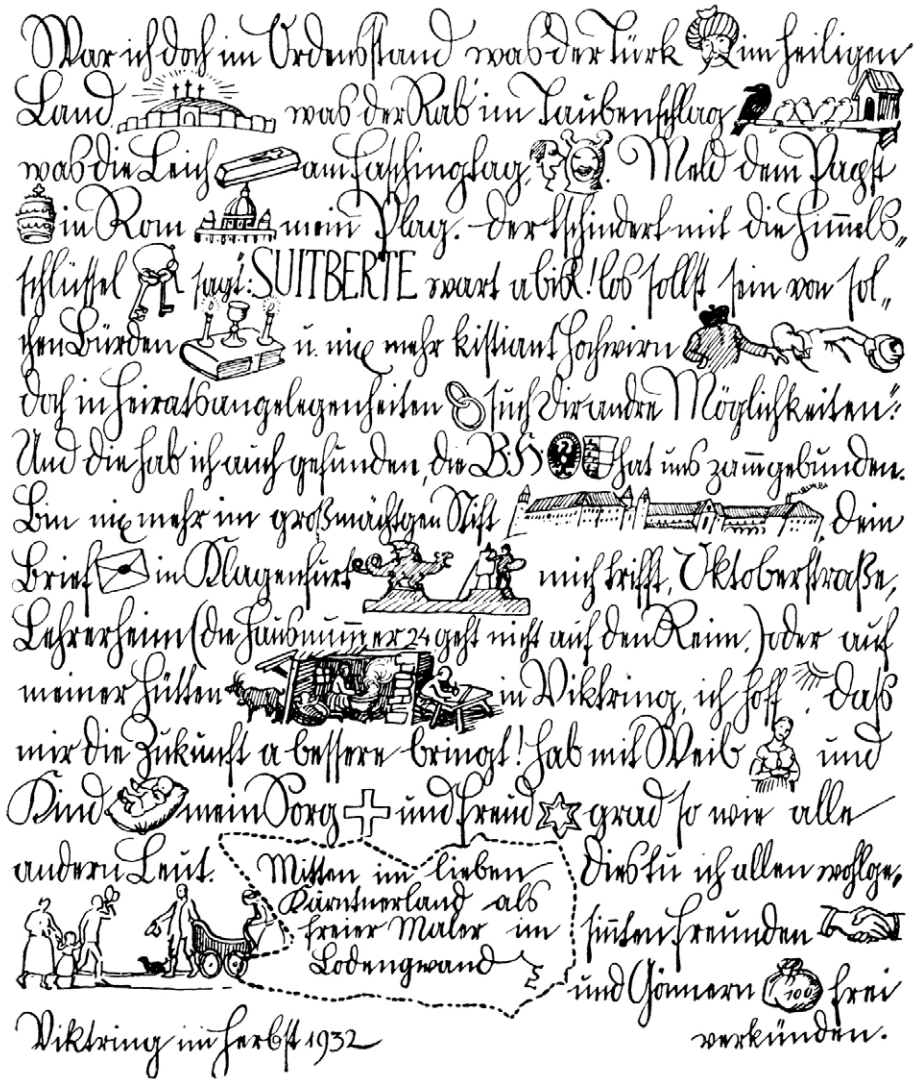 War ich doch im Ordensstand was der Türk im heiligen
Land was der Rab' im Taubenschlag
was die Leich am Faschingtag. Meld dem Papst
in Rom mein Plag. Der tschindert mit die Him̄els„
schlüssel sagt: "SUITBERTE wart a bisl! los sollst sein von sol„
chen Bürden u. nix mehr kistiant Hochwirn
doch in Heiratsangelegenheiten such Dir andre Möglichkeiten".
Und die hab ich auch gefunden, die B.H. hat uns zam̄gebunden.
Bin nix mehr im großmächtgen Stift, Dein
Brief in Klagenfurt mich trifft, Oktoberstraße,
Lehrerheim (die Hausnum̄er 24 geht nicht auf den Reim,) oder auf
meiner Hütten in Viktring, ich hoff, daß
mir die Zukunft a bessere bringt! Hab mit Weib und
Kind mein Sorg und Freud grad so wie alle
andern Leut. Mitten im lieben
Kärntnerland als
freier Maler im
Lodengwand
Dies tu ich allen wohlge„
sin̄ten Freunden
und Gön̄ern 100 frei
verkünden.
Viktring im Herbst 1932